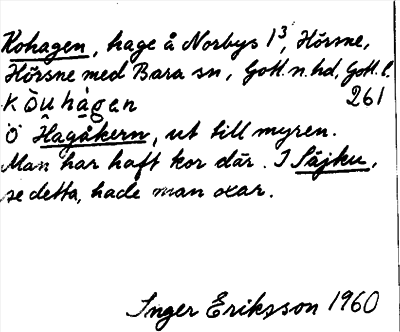 Kohagen, hage å Norbys 1³, Hörsne,
Hörsne med Bara sn, Gotl. n. hd, Gotl. l.
kòuhágen 261
Ö Hagåkern, ut till myren.
Man har haft kor där. I Säjku,
se detta, hade man oxar.
Inger Eriksson 1960